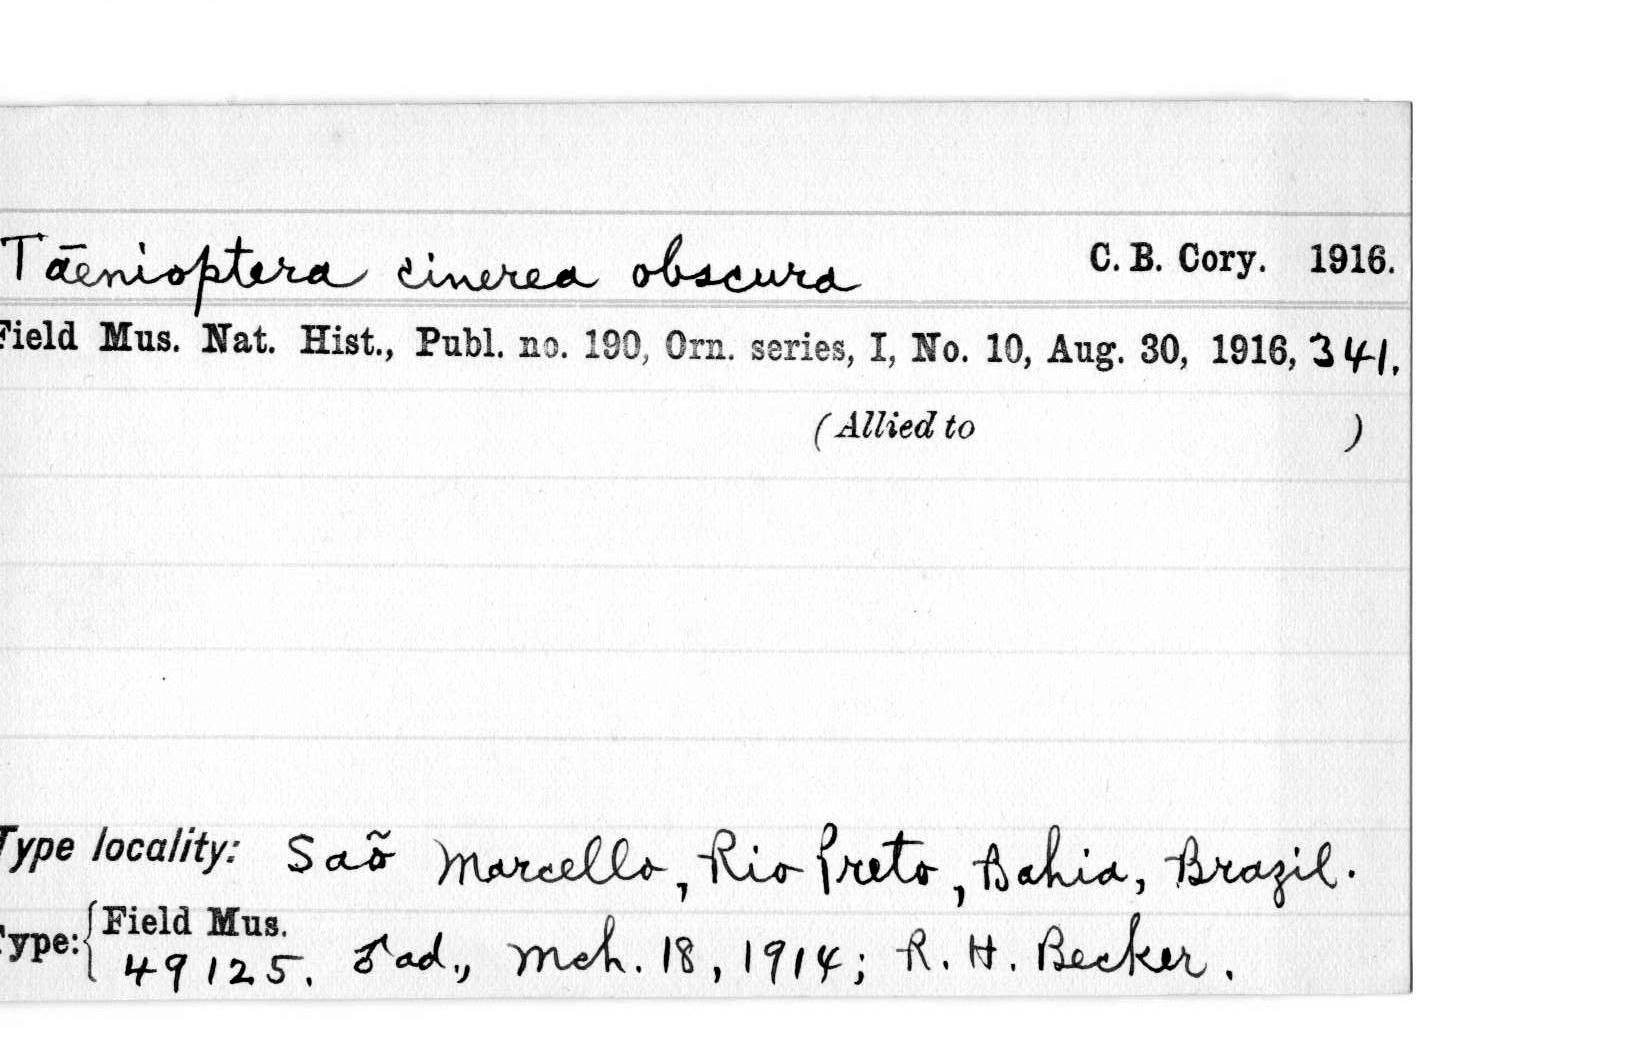 Tænioptera cinerea obscura C. B. Cory. 1916.
Field Mus. Nat. Hist., Publ. no. 190, Orn. series, I, No. 10, Aug. 30, 1916, 341.
(Allied to )
Type locality: Saõ Marcello, Rio Preto, Bahia, Brazil.
Type: { Field Mus.
49125. ♂ ad., Mch. 18, 1914; R. H. Becker.